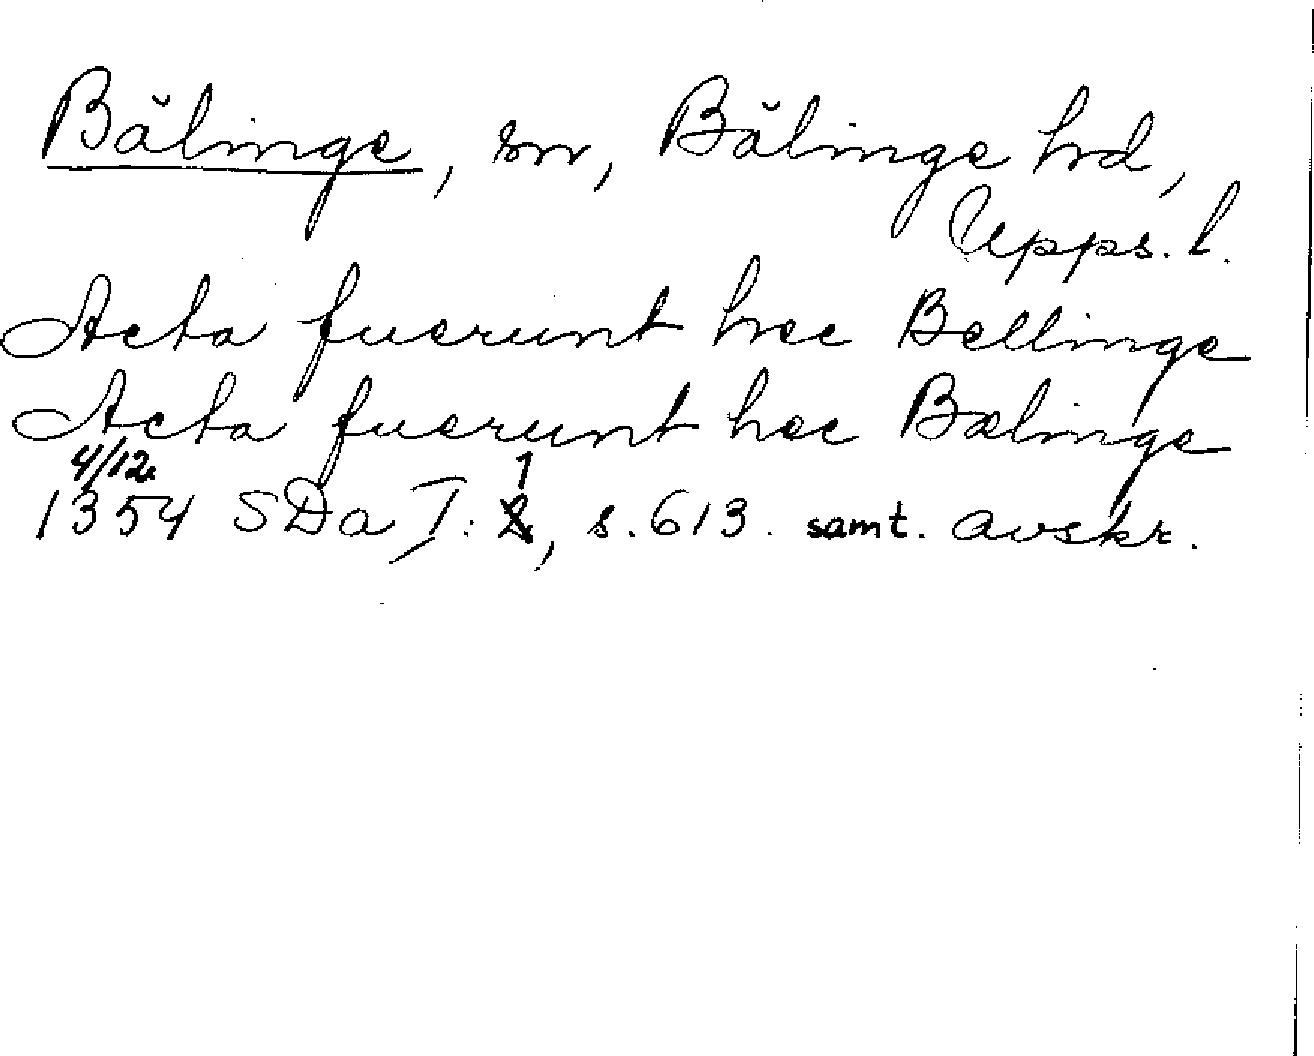 Bälinge, sn, Bälinge hd,
Upps. l.
Acta fuerunt hec Bellinge
Acta fuerunt hec Bælinge
4/12 1
1354 SDa I: 2, s. 613. samt. avskr.